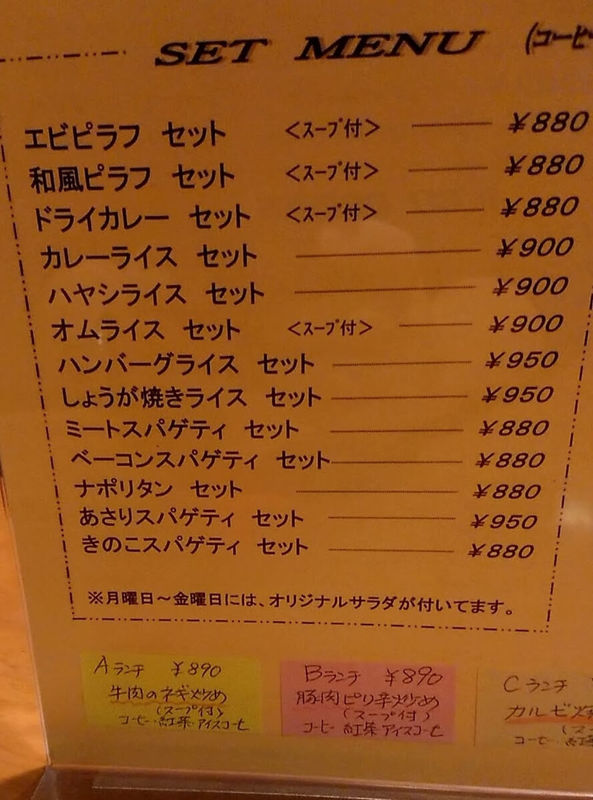 SET MENU (コーヒー
エビピラフ セット <スープ付> ¥880
和風ピラフ セット <スープ付> ¥880
ドライカレー セット <スープ付> ¥880
カレーライス セット ¥900
ハヤシライス セット ¥900
オムライス セット <スープ付> ¥900
ハンバーグライス セット ¥950
しょうが焼きライス セット ¥950
ミートスパゲティ セット ¥880
ベーコンスパゲティ セット ¥880
ナポリタン セット ¥880
あさりスパゲティ セット ¥950
きのこスパゲティ セット ¥880
※月曜日~金曜日には、オリジナルサラダが付いてます。
Aランチ ¥890
牛肉のネギ炒め
(スープ付)
コーヒー・紅茶・アイスコーヒー
Bランチ ¥890
豚肉ピリ辛炒め
(スープ付)
コーヒー 紅茶・アイスコーヒー
Cランチ
カルビ
(ス
コーヒー・紅